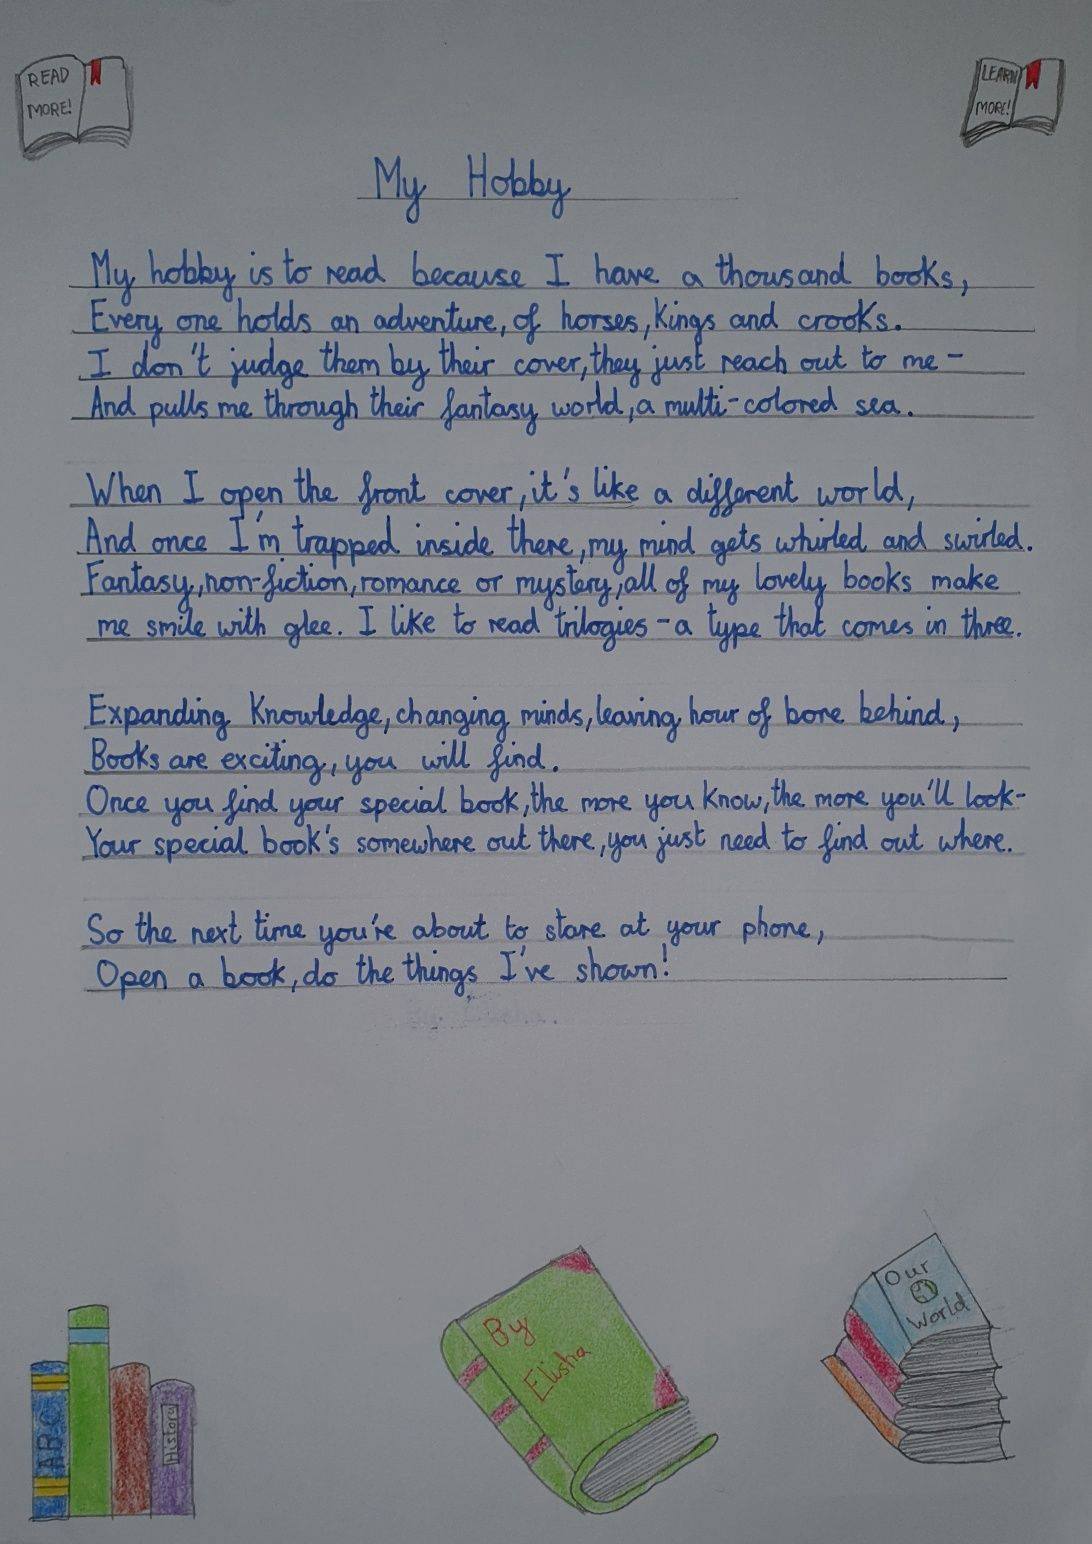 READ
MORE!
LEARN
MORE!
My Hobby
My hobby is to read because I have a thousand books,
Every one holds an adventure, of horses, kings and crooks.
I don't judge them by their cover, they just reach out to me -
And pulls me through their fantasy world, a multi-colored sea.
When I open the front cover, it's like a different world,
And once I'm trapped inside there, my mind gets whirled and swirled.
Fantasy, non-fiction, romance or mystery, all of my lovely books make
me smile with glee. I like to read trilogies - a type that comes in three.
Expanding knowledge, changing minds, leaving hour of bore behind,
Books are exciting, you will find.
Once you find your special book, the more you know, the more you'll look-
Your special book's somewhere out there, you just need to find out where.
So the next time you're about to stare at your phone,
Open a book, do the things I've shown!
ABC
History
By
Elisha
Our
World